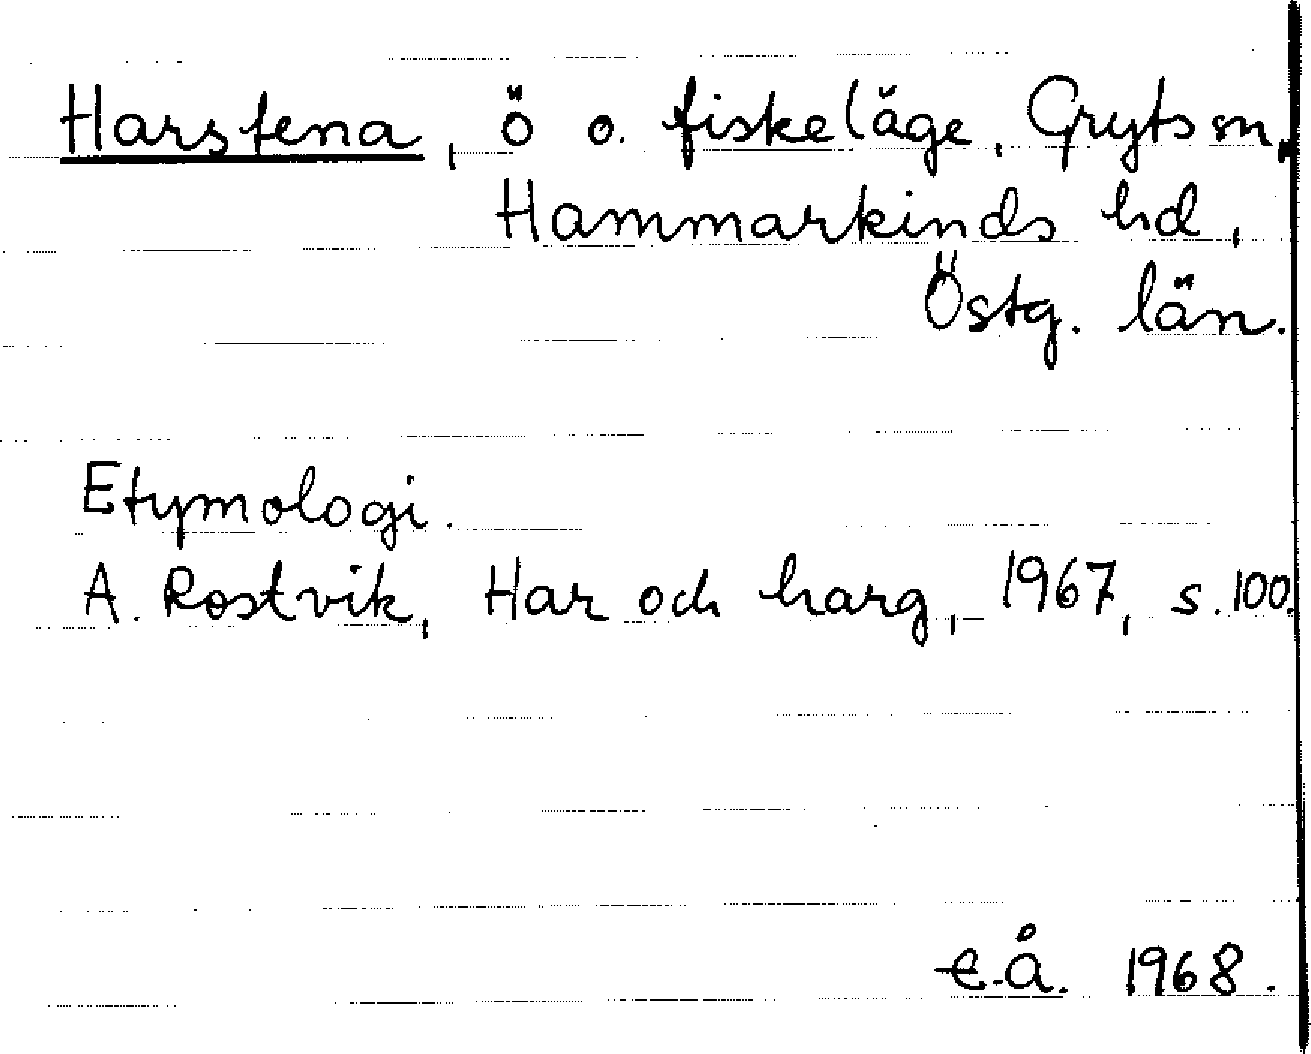 Harstena, ö o. fiskeläge, Gryts sn,
Hammarkinds hd,
Östg. län.
Etymologi.
A. Rostvik, Har och harg, 1967, s. 100.
E.Å. 1968.